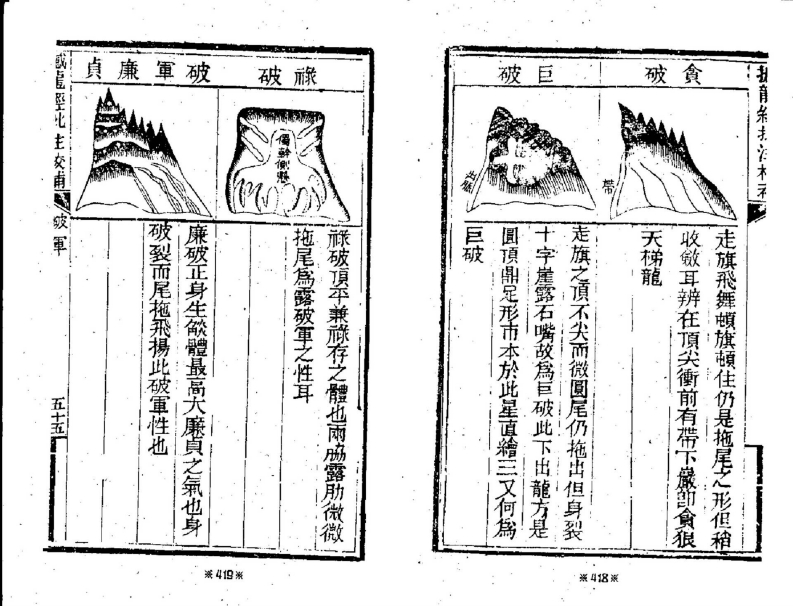 貪破
帶
走旗飛舞頓旗頓住仍是拖尾之形但稍
收斂耳辨在頂尖衝前有帶下巖即貪狼
天梯龍
巨破
走旗之頂不尖而微圓尾仍拖出但身裂
十字崖露石嘴故爲巨破此下出龍方是
圓頂鼎足形市本於此星直繪三又何爲
巨破
※418※
祿破
祿破頂平兼祿存之體也兩脇露肋微微
拖尾爲露破軍之性耳
破軍廉貞
廉破正身生燄體最高大廉貞之氣也身
破裂而尾拖飛揚此破軍性也
撼龍經批注校補
破軍
五十五
※419※